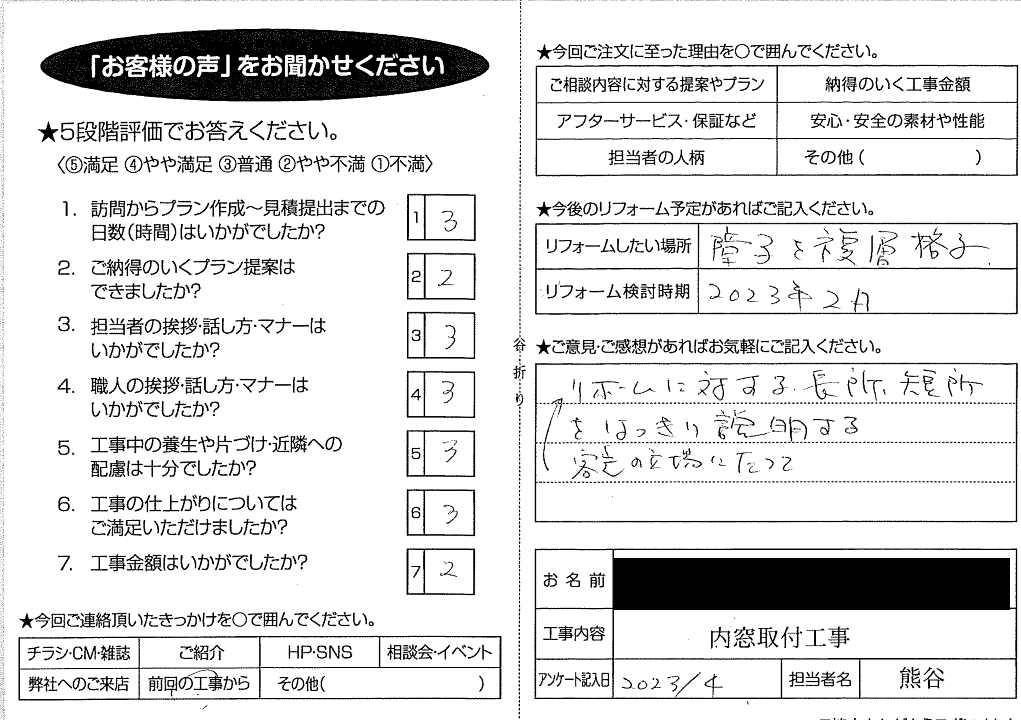 「お客様の声」をお聞かせください
★5段階評価でお答えください。
〈⑤満足 ④やや満足 ③普通 ②やや不満 ①不満〉
1. 訪問からプラン作成〜見積提出までの
日数(時間)はいかがでしたか?
1 3
2. ご納得のいくプラン提案は
できましたか?
2 2
3. 担当者の挨拶・話し方・マナーは
いかがでしたか?
3 3
4. 職人の挨拶・話し方・マナーは
いかがでしたか?
4 3
5. 工事中の養生や片づけ・近隣への
配慮は十分でしたか?
5 3
6. 工事の仕上がりについては
ご満足いただけましたか?
6 3
7. 工事金額はいかがでしたか?
7 2
★今回ご連絡頂いたきっかけを○で囲んでください。
チラシ・CM・雑誌 ご紹介 HP・SNS 相談会・イベント
弊社へのご来店 前回の工事から その他( )
谷折り
★今回ご注文に至った理由を○で囲んでください。
ご相談内容に対する提案やプラン 納得のいく工事金額
アフターサービス・保証など 安心・安全の素材や性能
担当者の人柄 その他( )
★今後のリフォーム予定があればご記入ください。
リフォームしたい場所 障子を複層格子
リフォーム検討時期 2023年2月
★ご意見・ご感想があればお気軽にご記入ください。
リホームに対する長所、短所
をはっきり説明する
客先の立場にたって
お名前
工事内容 内窓取付工事
アンケート記入日 2023/4 担当者名 熊谷